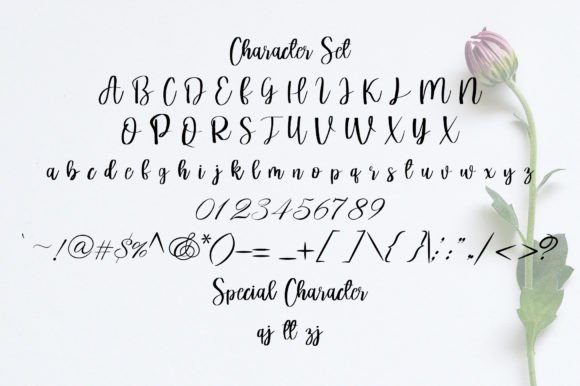 Character Set
A B C D E F G H I J K L M N
O P Q R S T U V W X Y Z
a b c d e f g h i j k l m n o p q r s t u v w x y z
0123456789
`~!@#$%^&*()-=_+[]\{}|;:'",./<>?
Special Character
qj tt zj